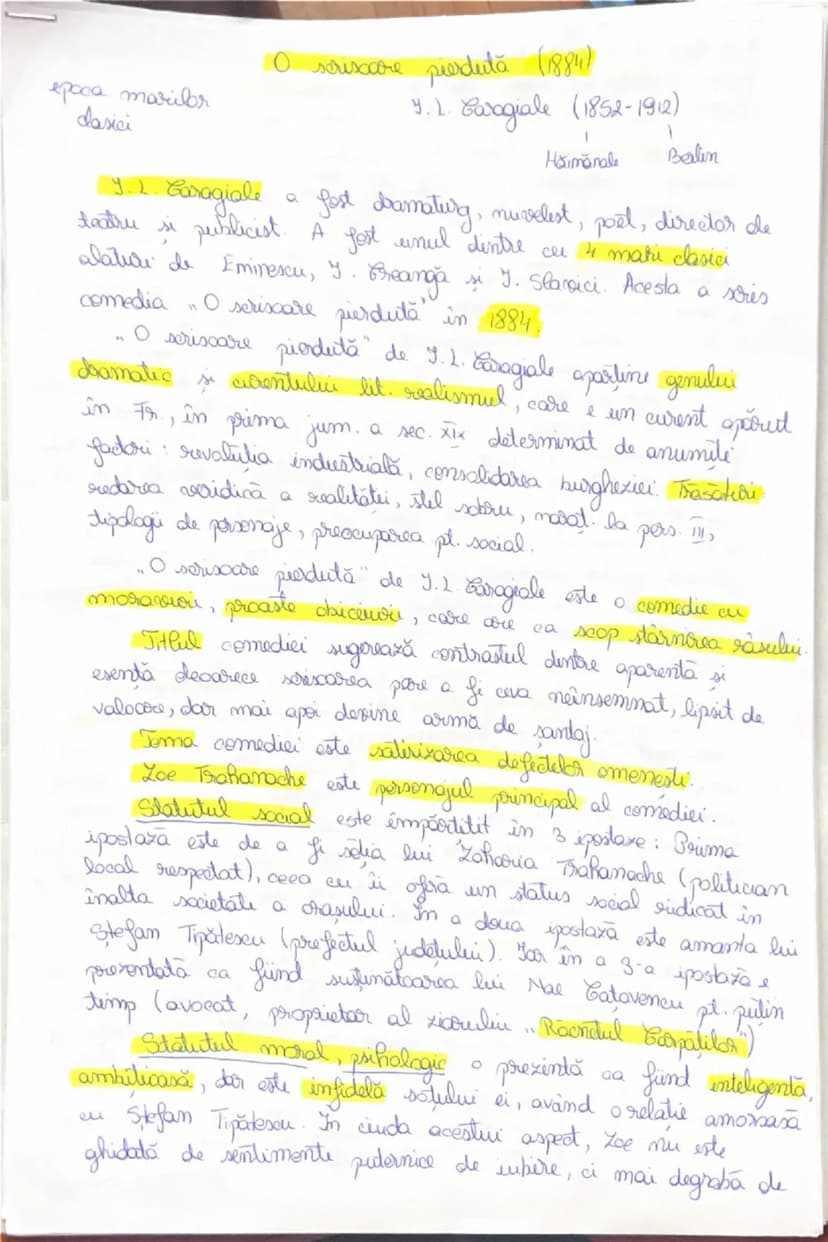 O scrisoare pierdută (1884)
epoca marilor
clasici
I. L. Caragiale (1852-1912)
Haimanale
Berlin
I. L. Caragiale a fost dramaturg, nuvelist, poet, director de
teatru si publicist. A fost unul dintre cei 4 mari clasici
alături de Eminescu, I. Creangă si I. Slavici. Acesta a scris
comedia „O scrisoare pierdută" în 1884.
„O scrisoare pierdută" de I. L. Caragiale aparține genului
dramatic și curentului lit. realismul, care e un curent apărut
în Fr., în prima jum. a sec. XIX determinat de anumiți
factori: revoluția industrială, consolidarea burgheziei. Trăsături
redarea veridică a realității, stil sobru, narat. la pers. III,
tipologii de personaje, preocuparea pt. social.
„O scrisoare pierdută" de I. L Caragiale este o comedie cu
moravuri, proaste obiceiuri, care are ca scop stârnirea râsului.
Titlul comediei sugerează contrastul dintre aparență și
esență deoarece scrisoarea pare a fi ceva neînsemnat, lipsit de
valoare, dar mai apoi devine armă de șantaj.
Tema comediei este satirizarea defectelor omenești.
Zoe Trahanache este personajul principal al comediei.
Statutul social este împărtitit în 3 ipostaze: Prima
ipostază este de a fi soția lui Zaharia Trahanache (politician
local respectat), ceea ce îi oferă un status social ridicat în
înalta societate a orașului. În a doua ipostază este amanta lui
Ștefan Tipătescu (prefectul județului). Iar în a 3-a ipostază e
prezentată ca fiind susținătoarea lui Nae Cațavencu pt. puțin
timp (avocat, proprietar al ziarului „Răcnetul Carpaților")
Statutul moral, psihologic o prezintă ca fiind inteligentă,
ambițioasă, dar este infidelă soțului ei, având o relație amoroasă
cu Ștefan Tipătescu. În ciuda acestui aspect, Zoe nu este
ghidată de sentimente puternice de iubire, ci mai degrabă de